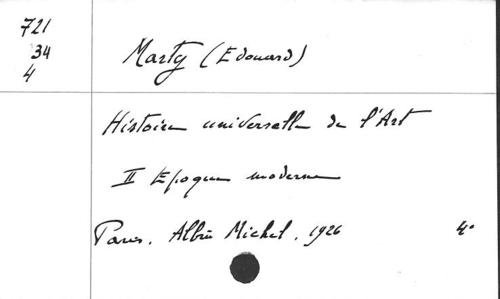 721
34
4
Marty (Edouard)
Histoire universelle de l'Art
II Epoque moderne
Paris. Albin Michel. 1926 4°